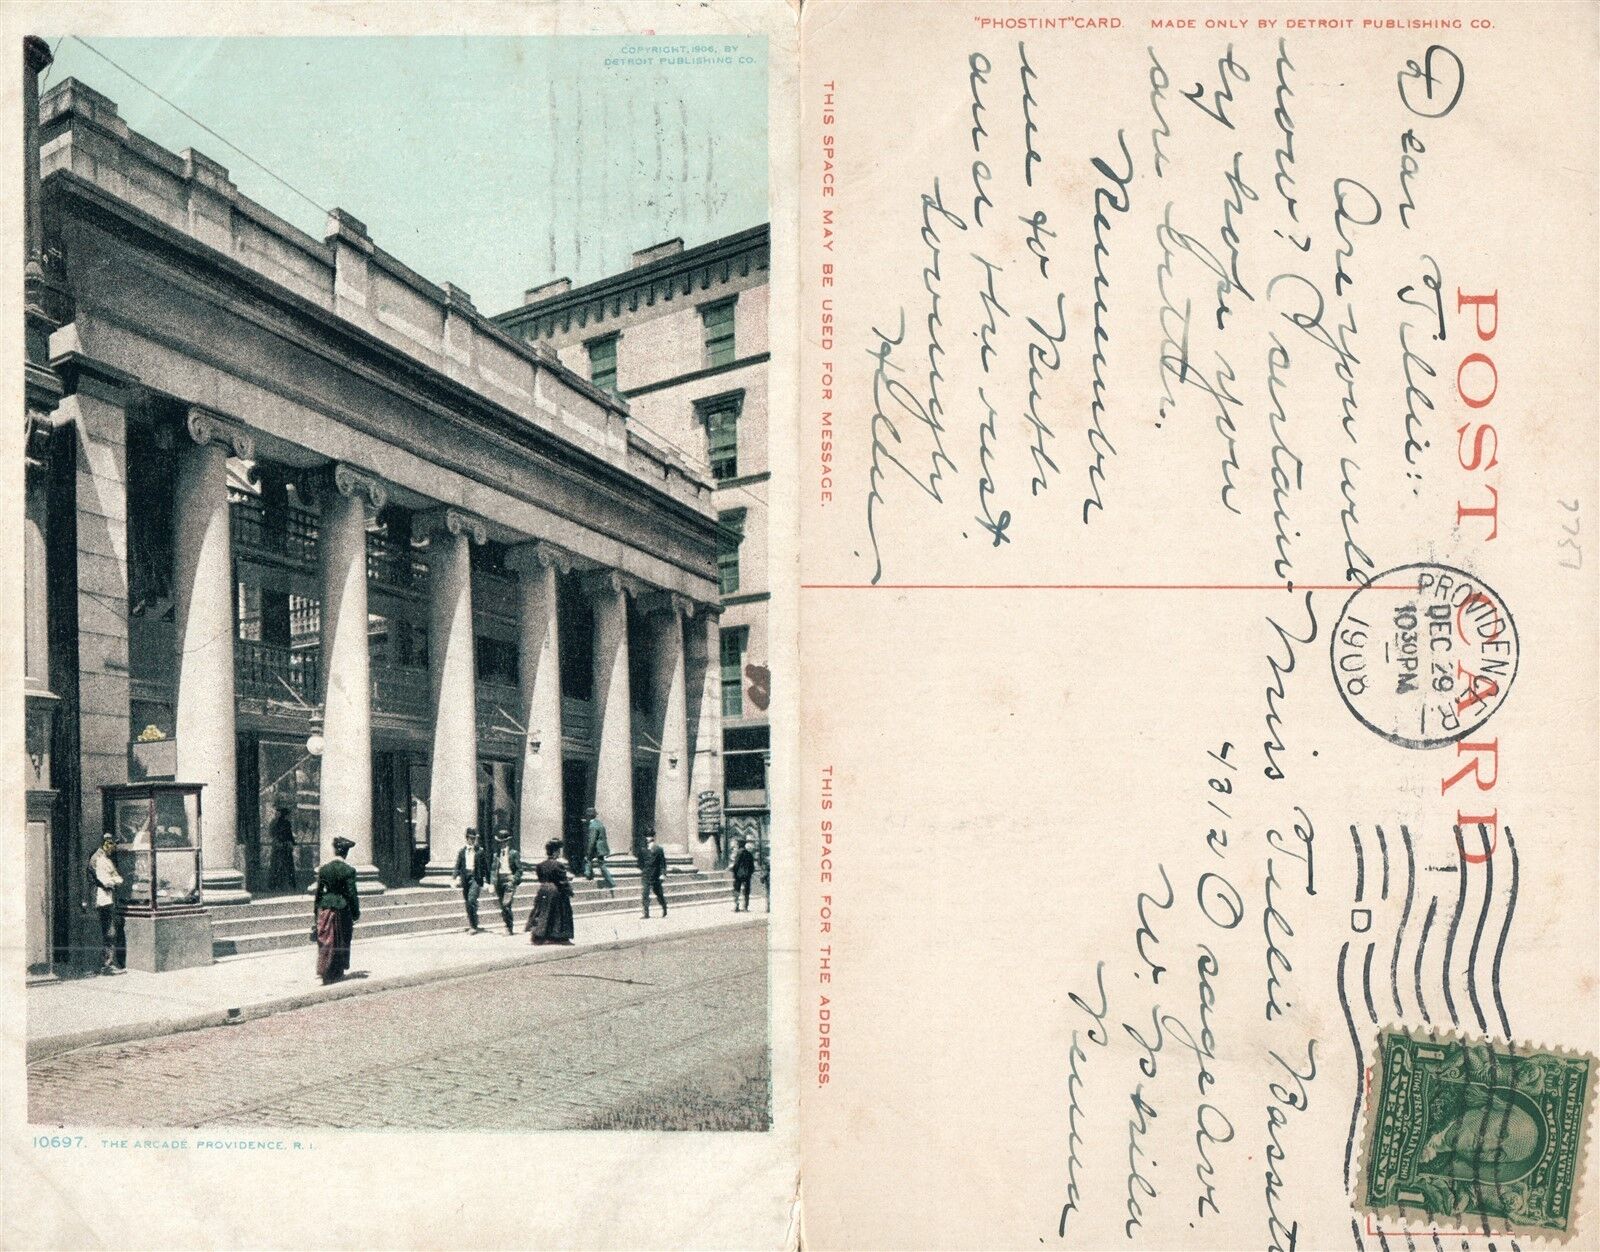 COPYRIGHT, 1906, BY
DETROIT PUBLISHING CO.
10697. THE ARCADE, PROVIDENCE, R. I.
"PHOSTINT" CARD. MADE ONLY BY DETROIT PUBLISHING CO.
POST CARD
THIS SPACE MAY BE USED FOR MESSAGE.
THIS SPACE FOR THE ADDRESS.
7751
Dear Tillie:-
Are you well
now? I certain
ly hope you
are better.
Remember
me to Ruth
and the rest.
Lovingly
Hellen.
PROVIDENCE R
DEC 29
10 30 PM
1908
D
Miss Tillie Bassett
4312 Osage Ave.
W. Phila
Penna.
1 1
ONE CENT
UNITED STATES OF AMERICA